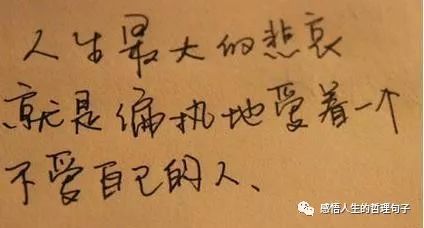 人生最大的悲哀
就是偏执地爱着一个
不爱自己的人、
感悟人生的哲理句子